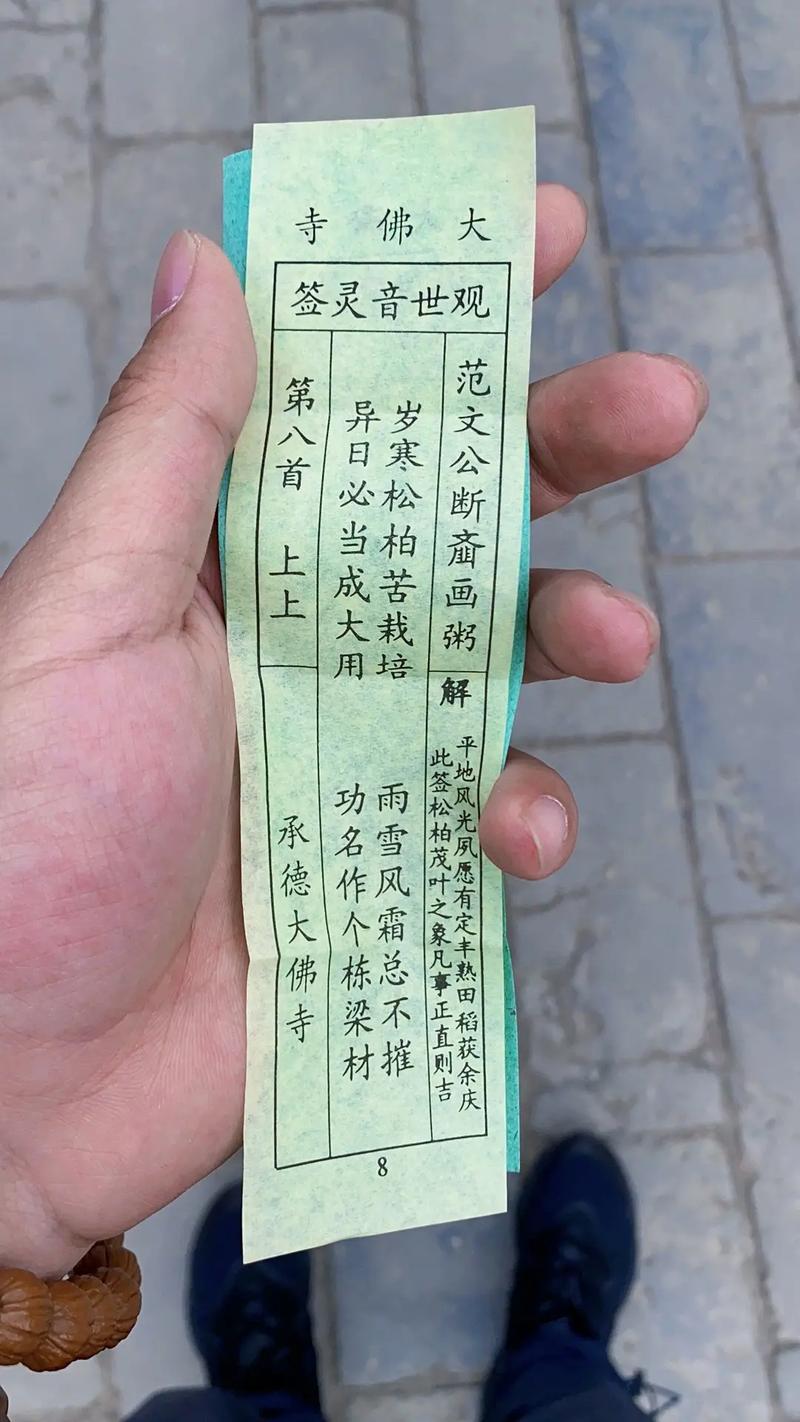 大佛寺
观世音灵签
范文公断齑画粥
解
平地风光夙愿有定丰熟田稻获余庆
此签松柏茂叶之象凡事正直则吉
岁寒松柏苦栽培 雨雪风霜总不摧
异日必当成大用 功名作个栋梁材
第八首 上上
承德大佛寺
8